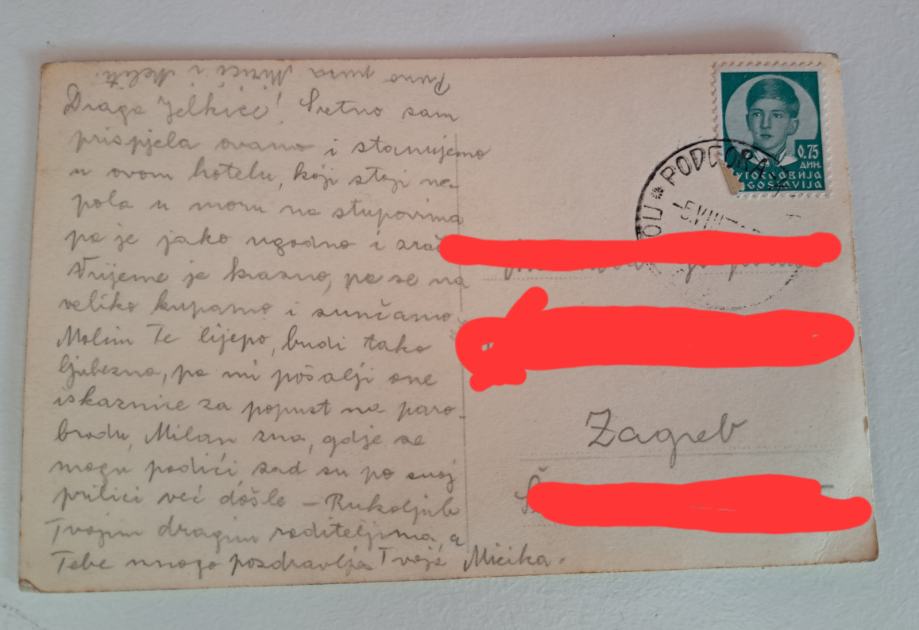 Puno pusa Mirici i Meliti.
Draga Jelkići! Sretno sam
prispjela ovamo i stanujemo
u ovom hotelu, koji stoji na
pola u moru na stupovima
pa je jako ugodno i
Vrijeme je krasno, pa se na
veliko kupamo i sunčamo.
Molim Te lijepo, budi tako
ljubezna, pa mi pošalji one
iskaznice za popust na paro-
brodu, Milan zna, gdje se
mogu podići sad su po svoj
prilici već došle – Rukoljub
Tvojim dragim roditeljima, a
Tebe mnogo pozdravlja Tvoja Micika.
0.75
ДИН.
ЈУГОСЛАВИЈА
JUGOSLAVIJA
PODGORA
Zagreb